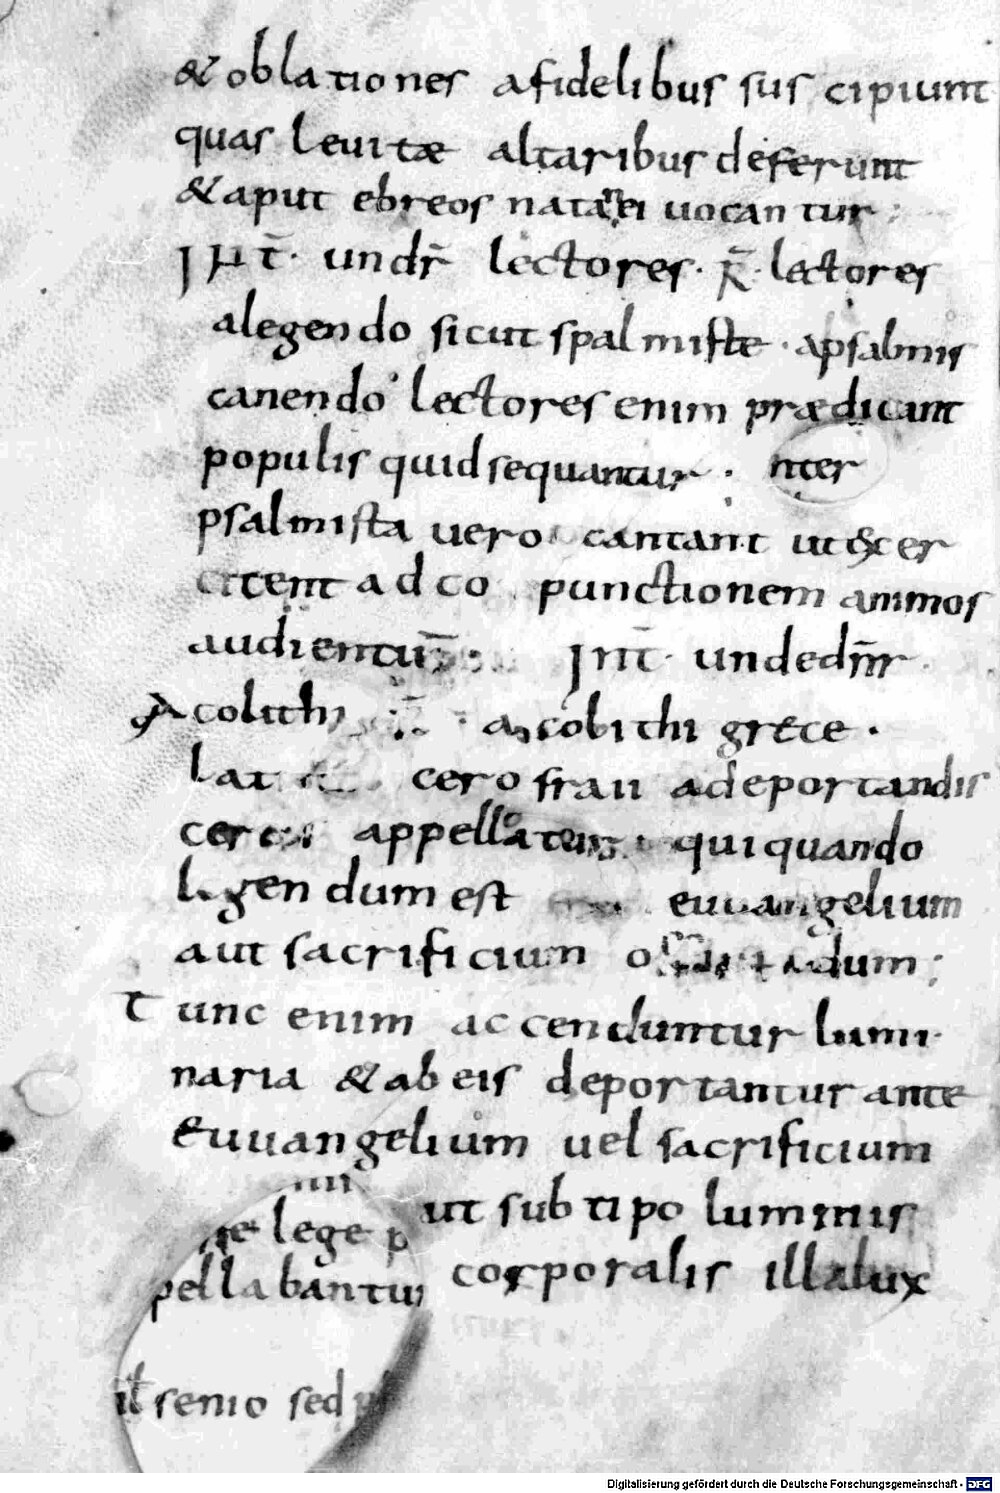 & oblationes a fidelibus suscipiunt
quas leuitæ altaribus deferunt
& aput ebreos natanei uocantur ;
Int̄. undr̄ lectores. R̄. lectores
a legendo sicut spalmiste . a psalmis
canendo lectores enim prædicant
populis quid sequantur . nter
psalmista uero cantant ut excer
citent ad co punctionem animos
audientiū Int̄. unde dnr̄
Acolithi acolithi grece .
Lat cero frari a deportandis
cereis appellatur qui quando
legendum est euuangelium
aut sacrificium offerendum ;
Tunc enim accenduntur lumi
naria & ab eis deportantur ante
Euuangelium uel sacrificium
ut sub tipo luminis
lege
corporalis illa lux
pellabantur
senio sed
Digitalisierung gefördert durch die Deutsche Forschungsgemeinschaft - DFG